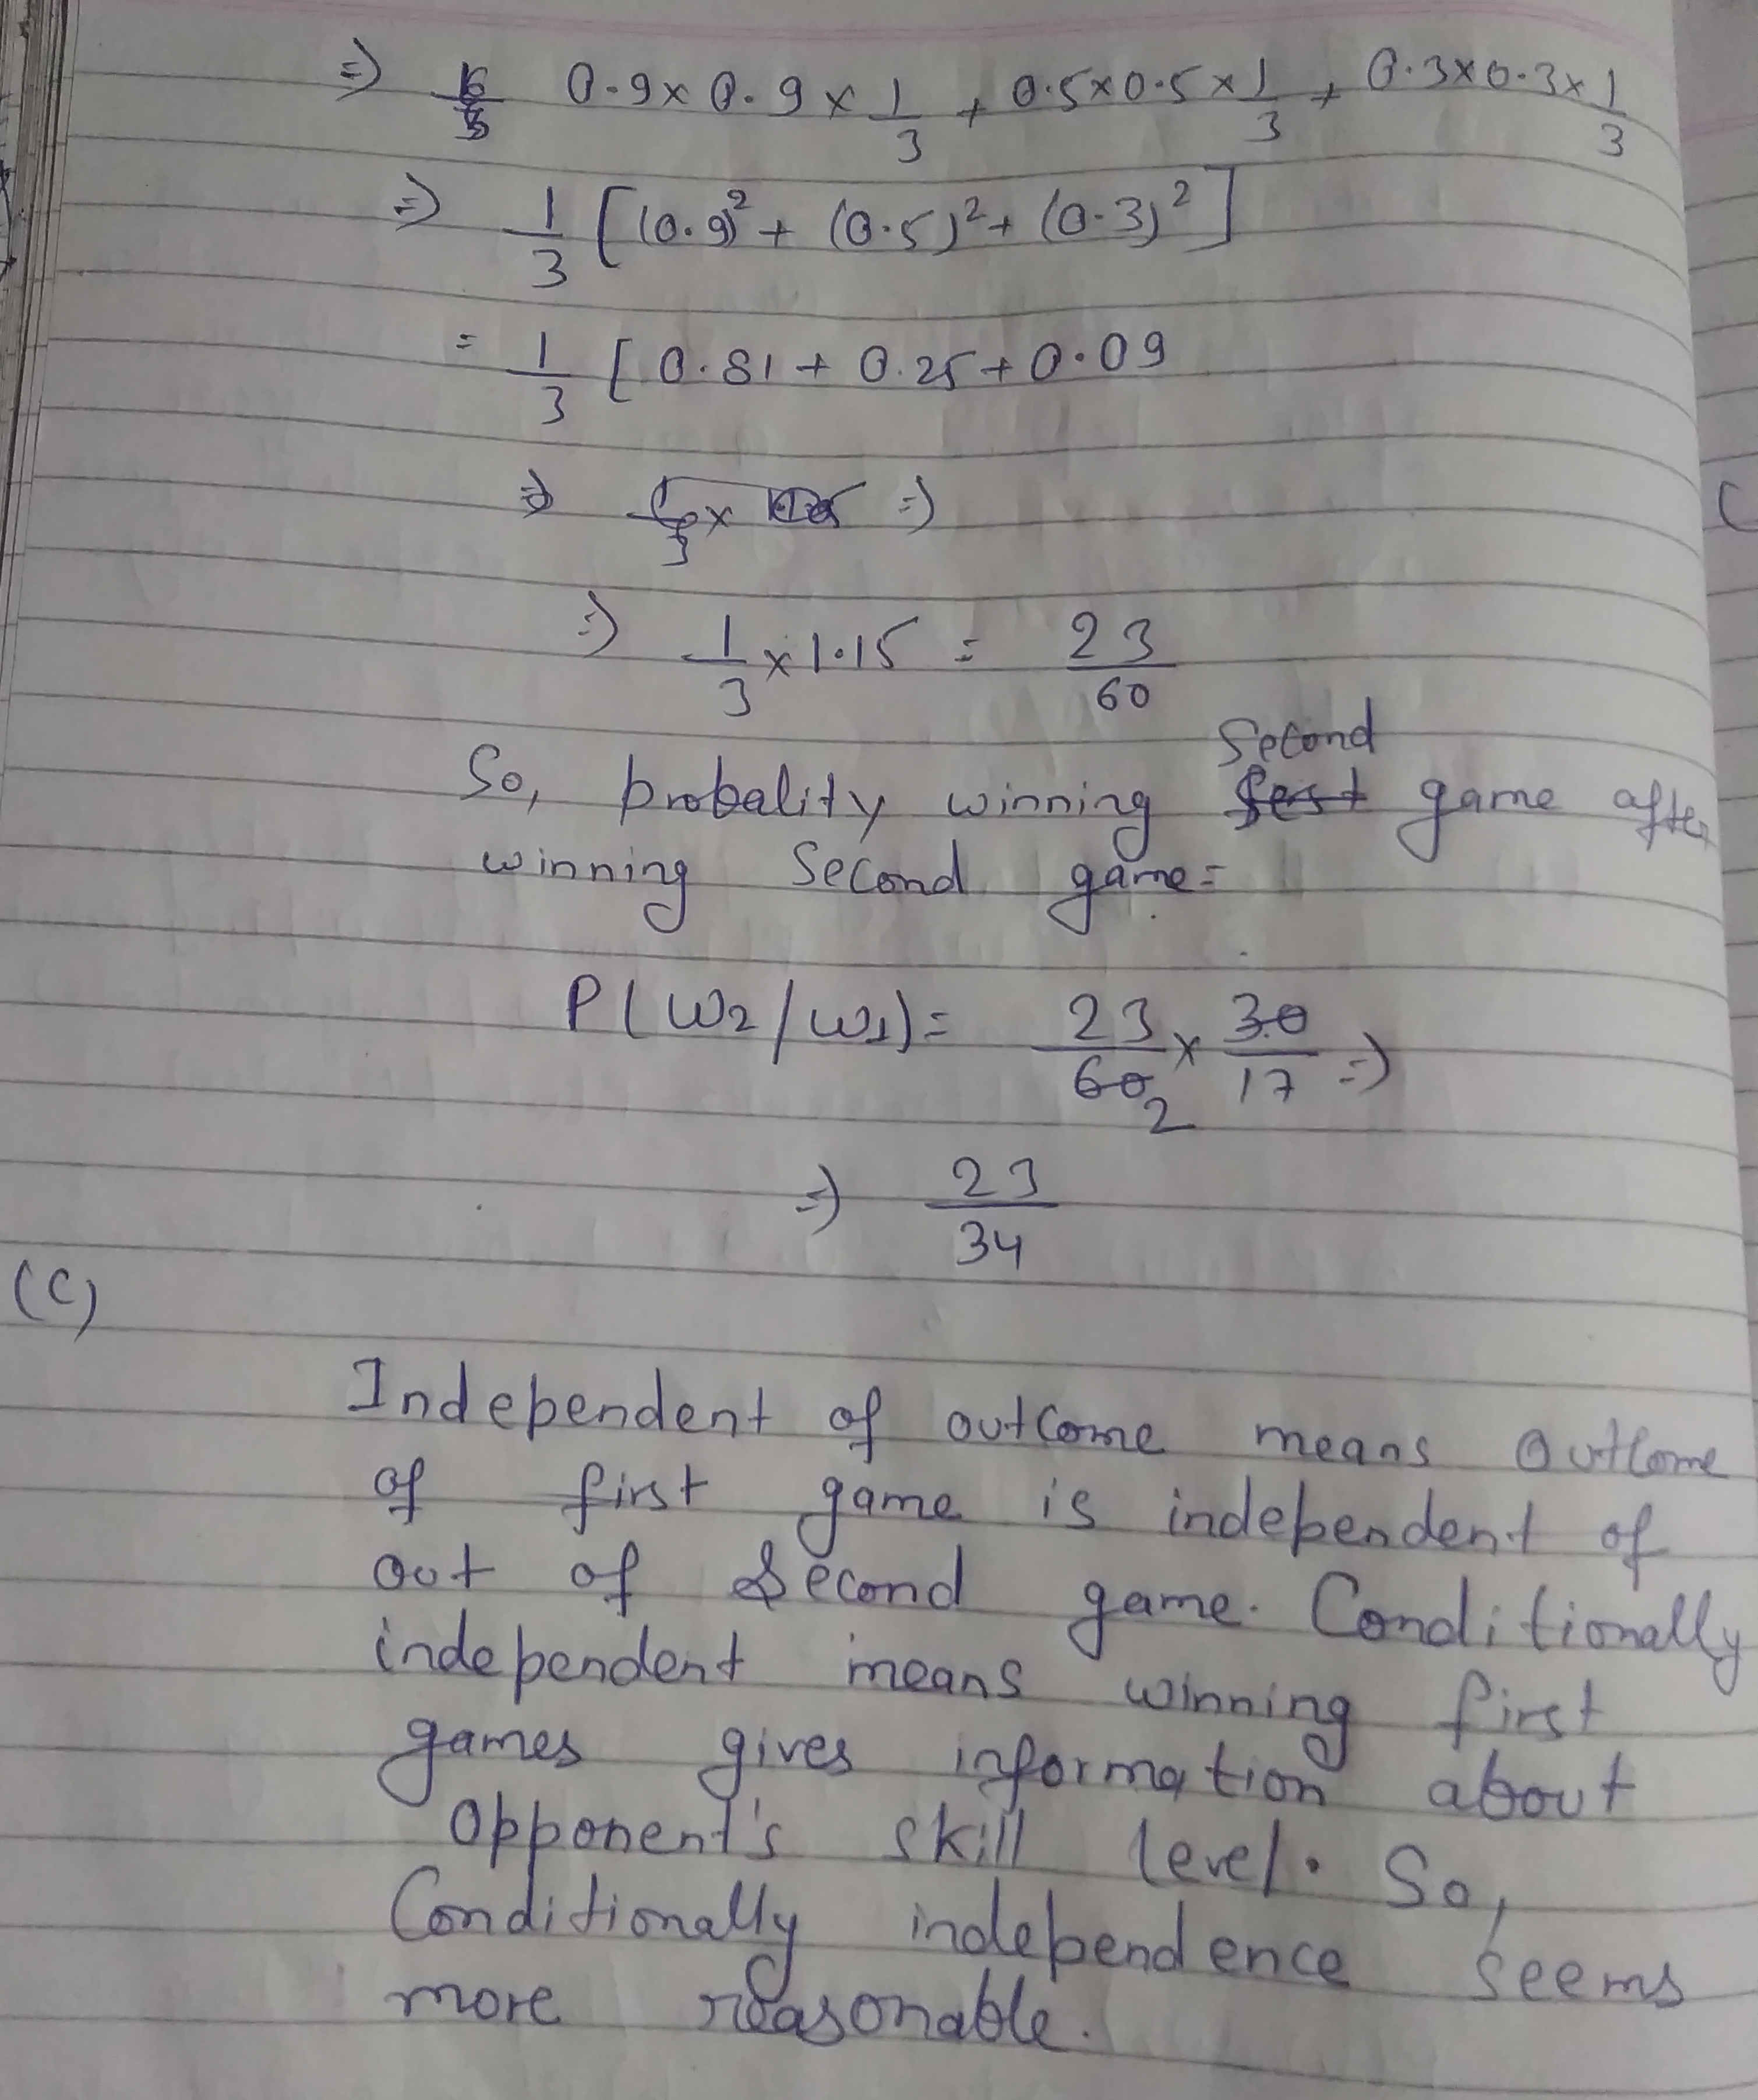 => 0.9 x 0.9 x 1/3 + 0.5x0.5 x 1/3 + 0.3x0.3x 1/3
=> 1/3 [(0.9)² + (0.5)² + (0.3)²]
= 1/3 [0.81 + 0.25 + 0.09
=> 1/3 x =>
=> 1/3 x 1.15 = 23/60
Second
So, probality winning first game after
winning Second game =
P(W2/W1) = 23/60 2 x 30/17 =>
=> 23/34
(C)
Independent of outcome means Outcome
of first game is independent of
out of Second game. Conditionally
independent means winning first
games gives information about
opponent's skill level. So,
Conditionally independence seems
more reasonable.